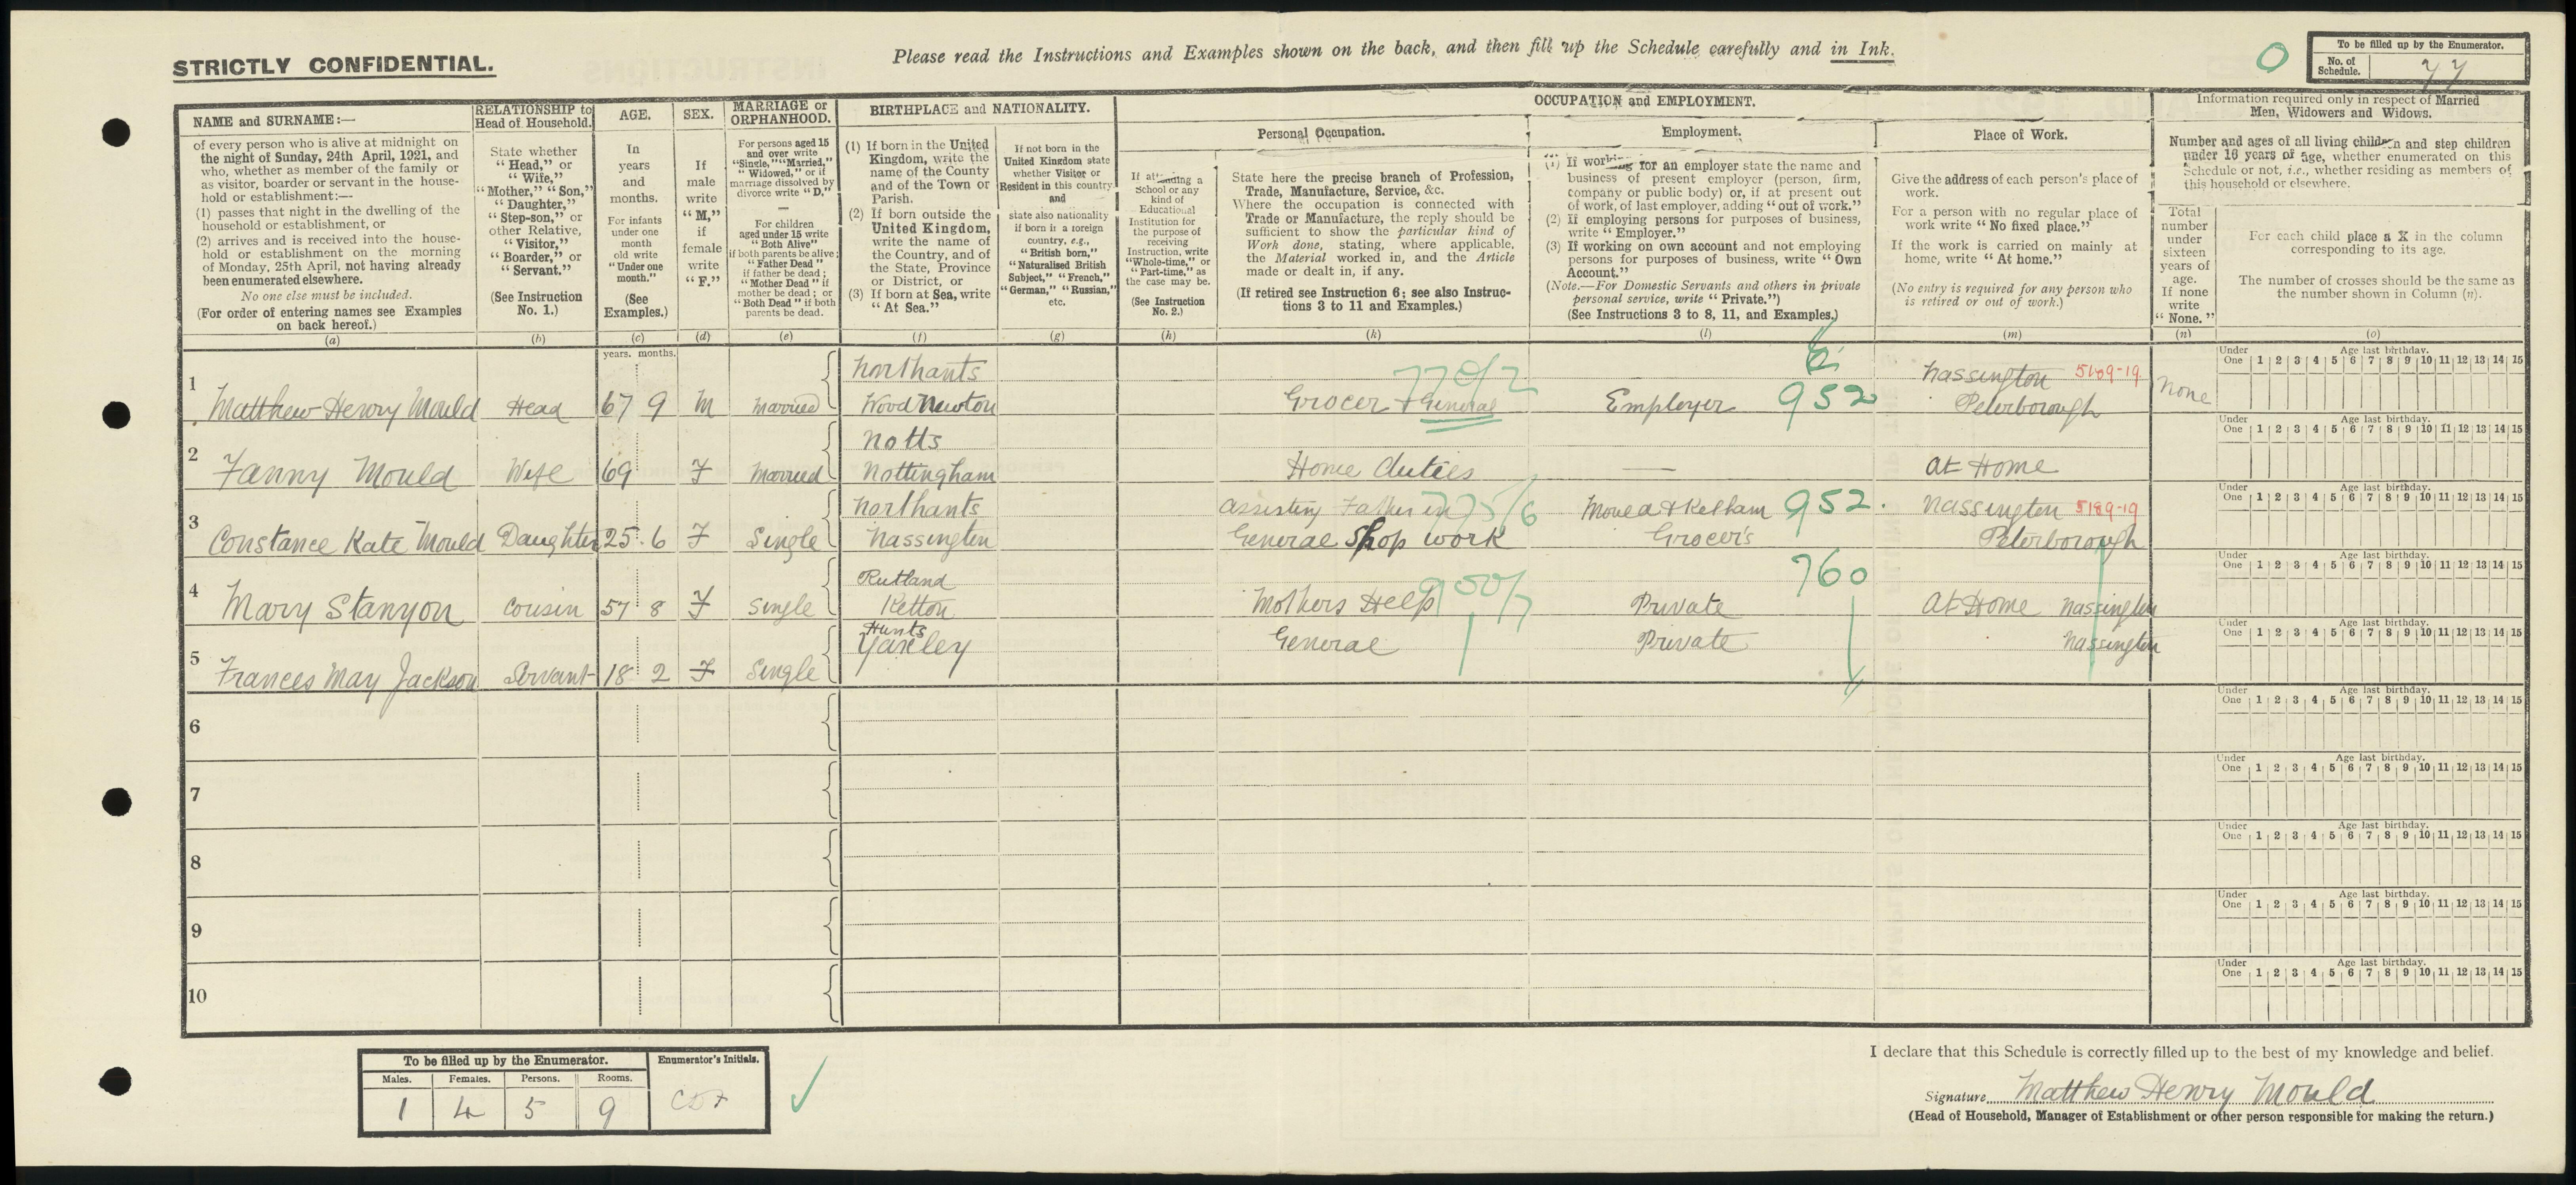 STRICTLY CONFIDENTIAL.
Please read the Instructions and Examples shown on the back, and then fill up the Schedule carefully and in Ink.
0
To be filled up by the Enumerator.
No. of Schedule. 77
NAME and SURNAME:—
of every person who is alive at midnight on
the night of Sunday, 24th April, 1921, and
who, whether as member of the family or
as visitor, boarder or servant in the house-
hold or establishment:—
(1) passes that night in the dwelling of the
household or establishment, or
(2) arrives and is received into the house-
hold or establishment on the morning
of Monday, 25th April, not having already
been enumerated elsewhere.
No one else must be included.
(For order of entering names see Examples
on back hereof.)
(a)
RELATIONSHIP to
Head of Household.
State whether
"Head," or
"Wife,"
"Mother," "Son,"
"Daughter,"
"Step-son," or
other Relative,
"Visitor,"
"Boarder," or
"Servant."
(See Instruction
No. 1.)
(b)
AGE.
In
years
and
months.
For infants
under one
month
old write
"Under one
month."
(See
Examples.)
(c)
SEX.
If
male
write
"M,"
if
female
write
"F."
(d)
MARRIAGE or
ORPHANHOOD.
For persons aged 15
and over write
"Single," "Married,"
"Widowed," or if
marriage dissolved by
divorce write "D."
—
For children
aged under 15 write
"Both Alive"
if both parents be alive;
"Father Dead"
if father be dead;
"Mother Dead" if
mother be dead; or
"Both Dead" if both
parents be dead.
(e)
BIRTHPLACE and NATIONALITY.
(1) If born in the United
Kingdom, write the
name of the County
and of the Town or
Parish.
(2) If born outside the
United Kingdom,
write the name of
the Country, and of
the State, Province
or District, or
(3) If born at Sea, write
"At Sea."
(f)
If not born in the
United Kingdom state
whether Visitor or
Resident in this country
and
state also nationality
if born in a foreign
country, e.g.,
"British born,"
"Naturalised British
Subject," "French,"
"German," "Russian,"
etc.
(g)
OCCUPATION and EMPLOYMENT.
If attending a
School or any
kind of
Educational
Institution for
the purpose of
receiving
Instruction, write
"Whole-time," or
"Part-time," as
the case may be.
(See Instruction
No. 2.)
(h)
Personal Occupation.
State here the precise branch of Profession,
Trade, Manufacture, Service, &c.
Where the occupation is connected with
Trade or Manufacture, the reply should be
sufficient to show the particular kind of
Work done, stating, where applicable,
the Material worked in, and the Article
made or dealt in, if any.
(If retired see Instruction 6; see also Instruc-
tions 3 to 11 and Examples.)
(k)
Employment.
(1) If working for an employer state the name and
business of present employer (person, firm,
company or public body) or, if at present out
of work, of last employer, adding "out of work."
(2) If employing persons for purposes of business,
write "Employer."
(3) If working on own account and not employing
persons for purposes of business, write "Own
Account."
(Note.—For Domestic Servants and others in private
personal service, write "Private.")
(See Instructions 3 to 8, 11, and Examples.)
(l)
Place of Work.
Give the address of each person's place of
work.
For a person with no regular place of
work write "No fixed place."
If the work is carried on mainly at
home, write "At home."
(No entry is required for any person who
is retired or out of work.)
(m)
Information required only in respect of Married
Men, Widowers and Widows.
Number and ages of all living children and step children
under 16 years of age, whether enumerated on this
Schedule or not, i.e., whether residing as members of
this household or elsewhere.
Total
number
under
sixteen
years of
age.
If none
write
"None."
(n)
For each child place a X in the column
corresponding to its age.
The number of crosses should be the same as
the number shown in Column (n).
(o)
years. months.
1 Matthew Henry Mould Head 67 9 M Married Northants Wood Newton Grocer & General 770/2 Employer 952 Nassington Peterborough None
Under One 1 2 3 4 5 6 7 8 9 10 11 12 13 14 15
Age last birthday.
2 Fanny Mould Wife 69 F Married Notts Nottingham Home duties — At Home
Under One 1 2 3 4 5 6 7 8 9 10 11 12 13 14 15
Age last birthday.
3 Constance Kate Mould Daughter 25 6 F Single Northants Nassington Assisting Father in General Shop work 775/6 Mould & Kelham Grocer's 952. Nassington Peterborough 5189-19
Under One 1 2 3 4 5 6 7 8 9 10 11 12 13 14 15
Age last birthday.
4 Mary Stanyon Cousin 57 8 F Single Rutland Ketton Mothers Help 900/7 Private 960 At Home Nassington
Under One 1 2 3 4 5 6 7 8 9 10 11 12 13 14 15
Age last birthday.
5 Frances May Jackson Servant 18 2 F Single Hunts Yaxley General Private Nassington
Under One 1 2 3 4 5 6 7 8 9 10 11 12 13 14 15
Age last birthday.
6
Under One 1 2 3 4 5 6 7 8 9 10 11 12 13 14 15
Age last birthday.
7
Under One 1 2 3 4 5 6 7 8 9 10 11 12 13 14 15
Age last birthday.
8
Under One 1 2 3 4 5 6 7 8 9 10 11 12 13 14 15
Age last birthday.
9
Under One 1 2 3 4 5 6 7 8 9 10 11 12 13 14 15
Age last birthday.
10
Under One 1 2 3 4 5 6 7 8 9 10 11 12 13 14 15
Age last birthday.
To be filled up by the Enumerator.
Enumerator's Initials.
Males. Females. Persons. Rooms.
1 4 5 9
I declare that this Schedule is correctly filled up to the best of my knowledge and belief.
Signature Matthew Henry Mould
(Head of Household, Manager of Establishment or other person responsible for making the return.)